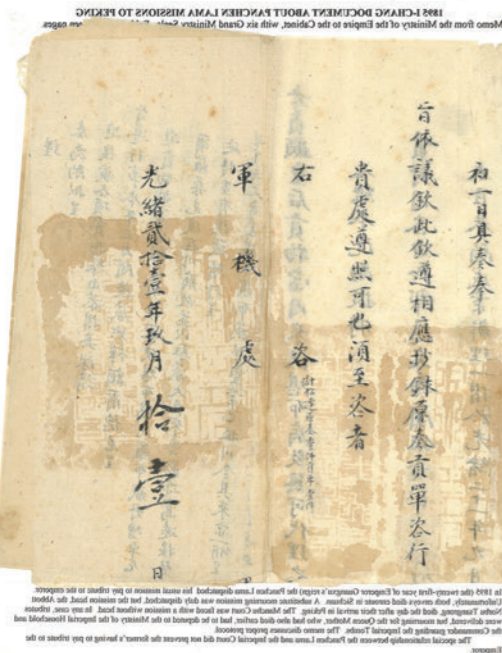 1895 I-CHANG DOCUMENT ABOUT PANCHEN LAMA MISSIONS TO PEKING
Memo from the Ministry of the Empire to the Cabinet, with six Grand Ministry Seals. pages.
初一日具奏奉
旨依議欽此欽遵相應抄錄原奏貢單咨行
貴處遵照可也須至咨者
右咨
軍機處
光緒貳拾壹年玖月拾壹日
In 1895 (the twenty-first year of Emperor Guangxu's reign) the Panchen Lama dispatched his usual mission to pay tribute to the emperor.
Unfortunately, both envoys died enroute in Sichuan. A substitute mourning mission was duly dispatched, but the mission head, the Abbott
died the day after their arrival in Peking. The Manchu Court was faced with a mission without head. In any case, tributes
were delivered, but mourning for the Queen Mother, who had also died earlier, had to be deputed to the Ministry of the Imperial Household and
the Commander guarding the Imperial Tombs. The memo discusses proper protocol.
The special relationship between the Panchen Lama and the Imperial Court did not prevent the former's having to pay tribute to the
Emperor.